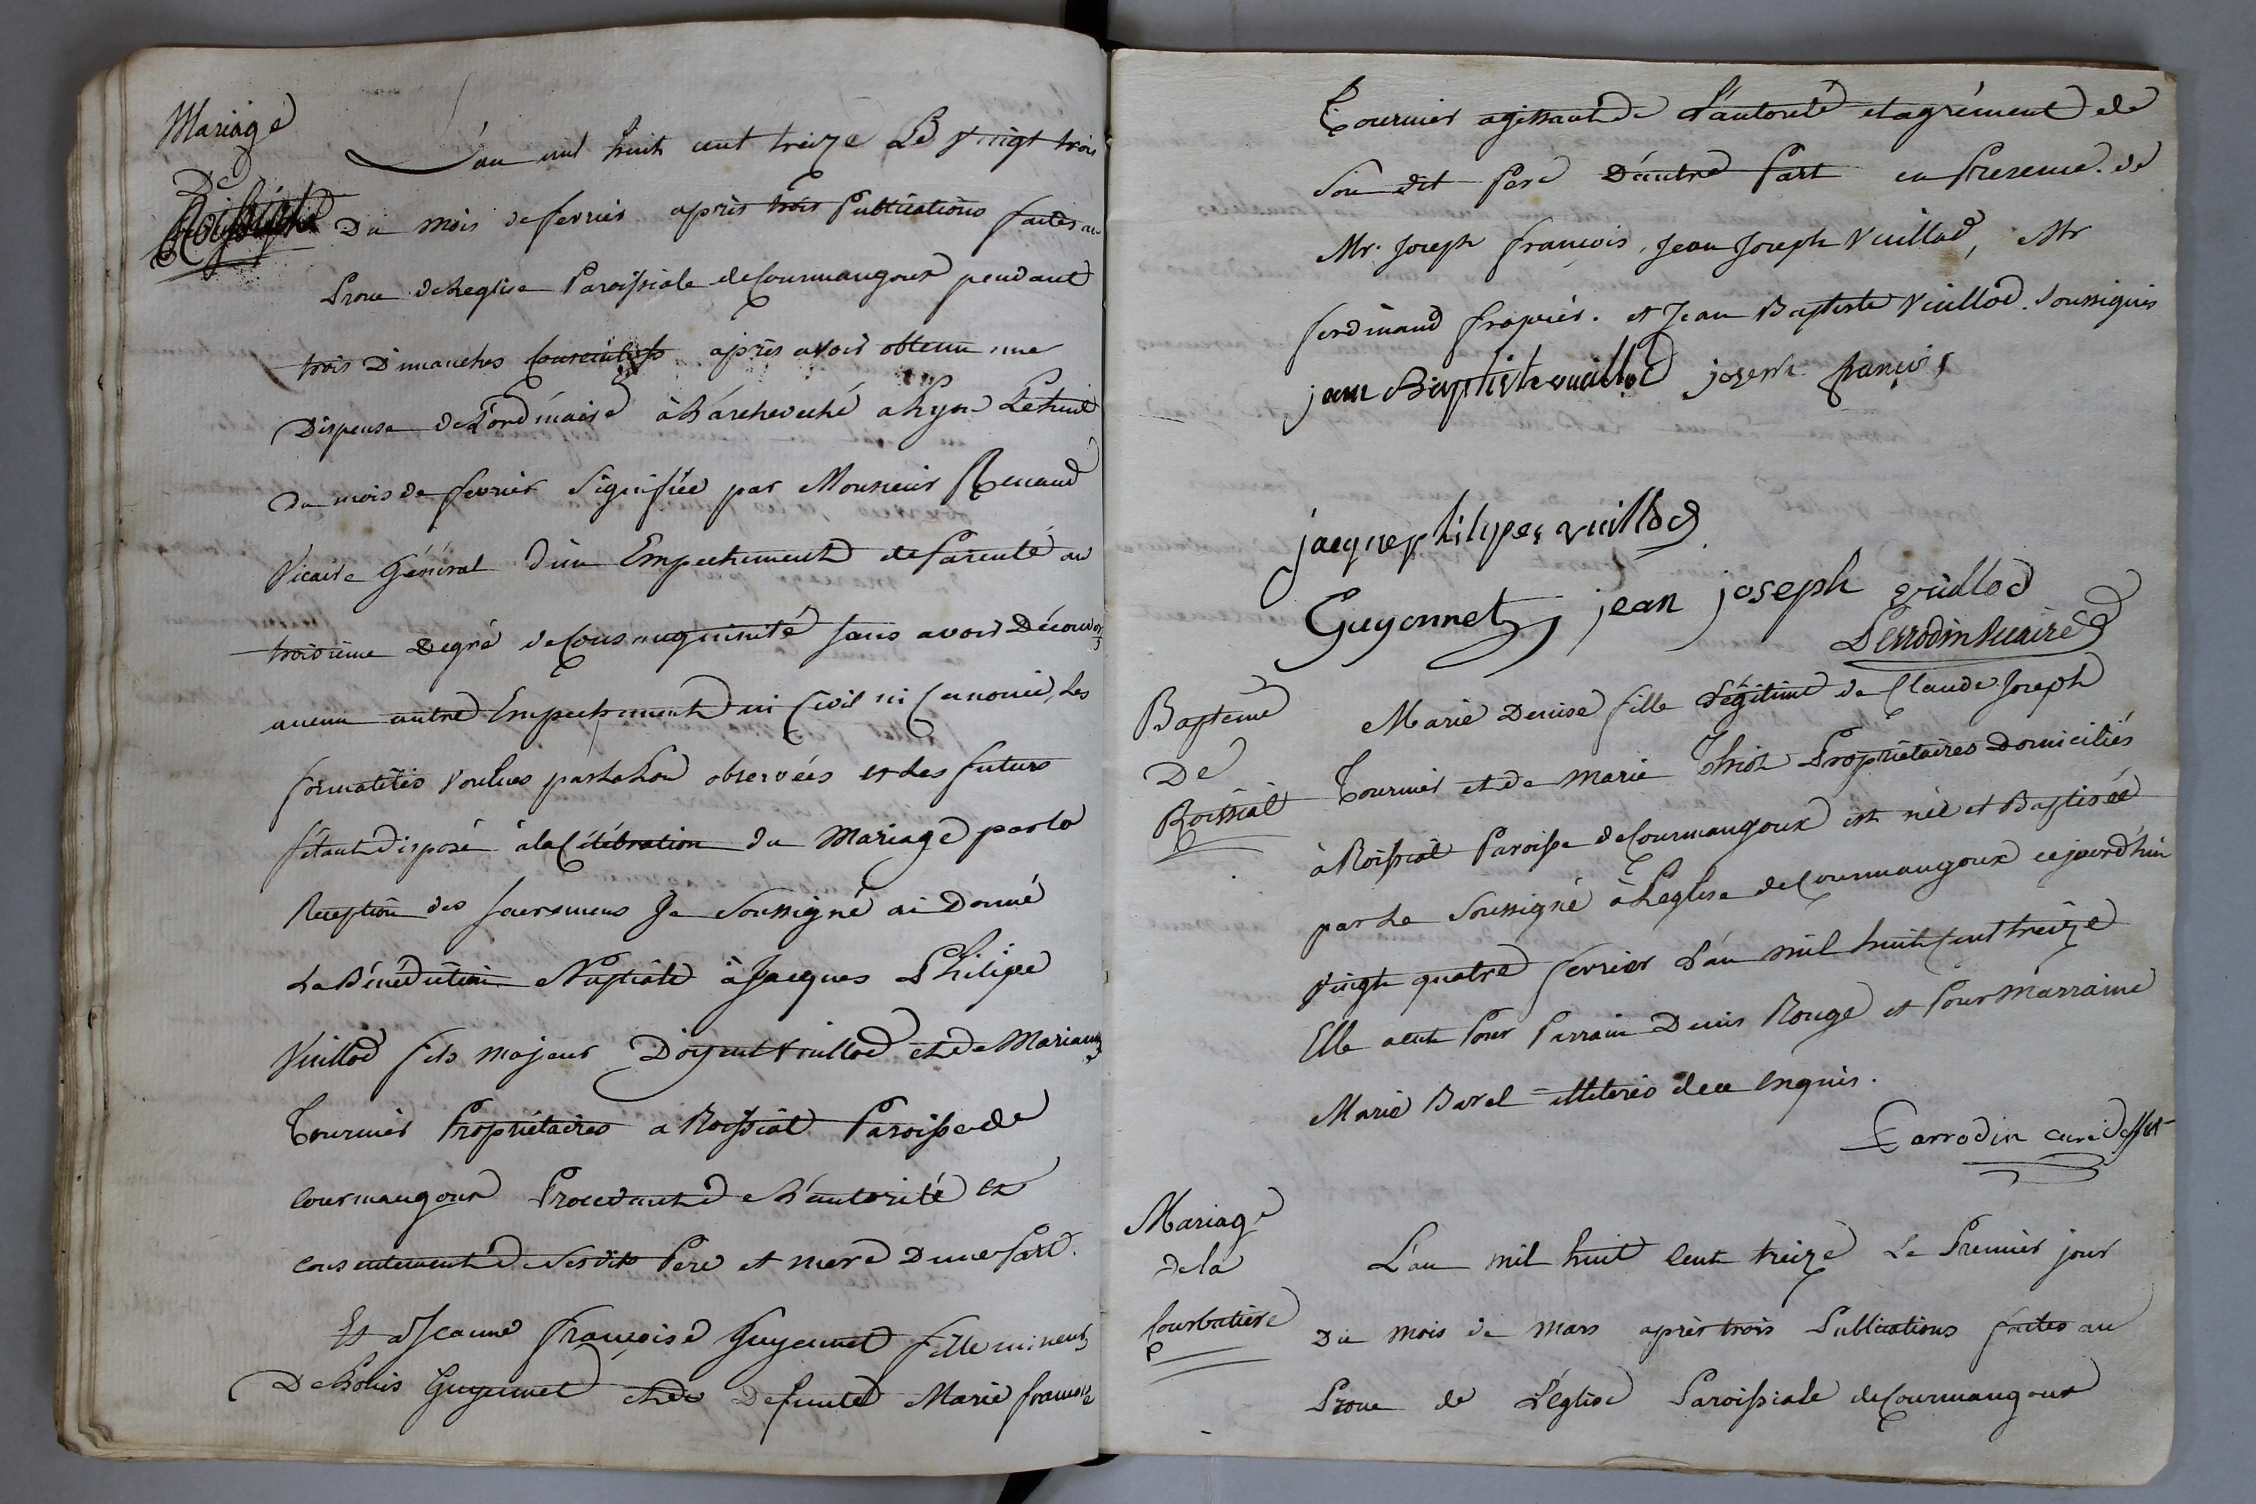 Mariage
De
L'an mil huit cent treize Le vingt trois
Du mois de fevrier après trois Publications faites au
Prone de Leglise Paroissiale de Courmangoux pendant
trois Dimanches Consecutifs après avoir obtenu une
Dispense de L'ordinaire à L'archeveché a Lyon Le huit
du mois de fevrier Signifiée par Monsieur Renaud
Vicaire Général d'un Empechement de Parenté au
troisieme degré de Consanguinité sans avoir Découvert
aucun autre Empechement ni Civil ni Canonic, Les
formalités voulues par La Loi observées et Les futurs
s'étant disposé à la Célébration du Mariage par la
Reception des Sacremens Je Soussigné ai Donné
La Bénédiction Nuptiale à Jacques Philipe
Vuillod fils majeur Voyent Vuillod et de Marianne
Tournier Propriétaires a Roissiat Paroisse de
Courmangoux Procedant de L'autorité et
consentement de Sesdits Pere et mere D'une Part.
Et à Jeanne Françoise Guyennet fille mineure
De Louis Guyennet et de Defunte Marie françoise
Tournier agissant de L'autorité et agrément de
Son dit Pere D'autre Part en Presence de
Mr. Joseph François, Jean Joseph Vuillod, Mr
ferdinand et Jean Baptiste Vuillod. Soussignés
jean Baptiste vuillod joseph françois
jacque philipes vuillod
Guyonnet jean joseph vuillod
Perrodin vicaire
Bapteme
De
Roissiat
Marie Denise fille Légitime de Claude Joseph
Tournier et de Marie Propriétaires Domiciliés
à Roissiat Paroisse de Courmangoux est née et Baptisée
par Le Soussigné à Leglise de Courmangoux cejourd'hui
vingt quatre fevrier L'an mil huit cent treize
Elle a eut Pour Parrain Denis Rouge et Pour Marraine
Marie Barel = illiterés de ce Enquis.
Parrodin curé desst
Mariage
de la
Courbatiere
L'an mil huit Cent treize Le Premier jour
Du mois de Mars après trois Publications faites au
Prone de L'église Paroissiale de Courmangoux